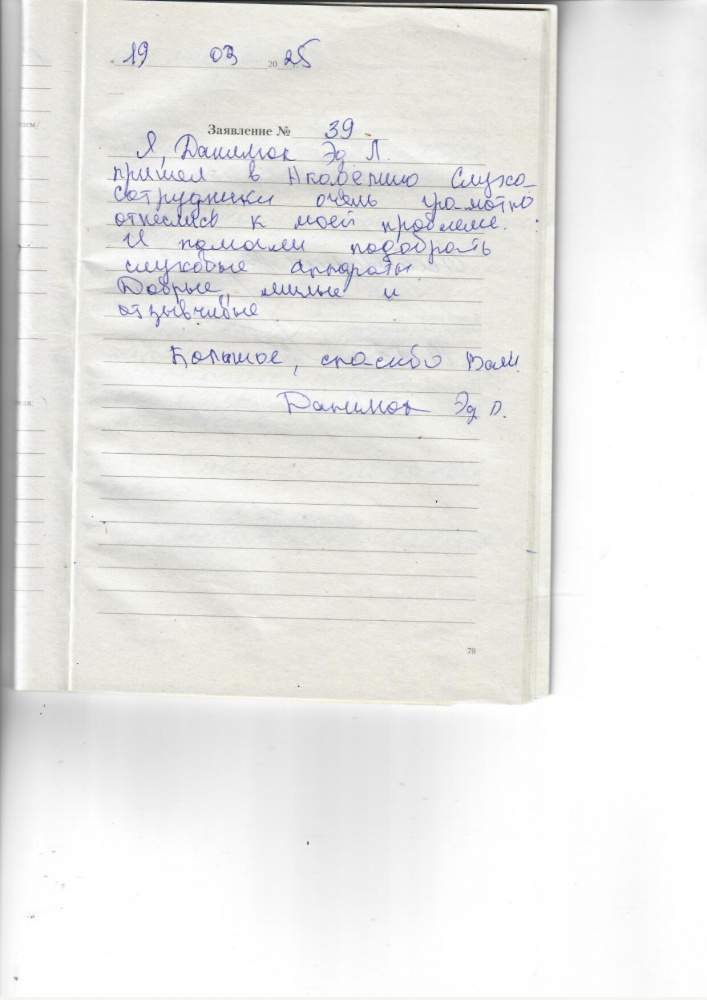 19 03 2025
Заявление № 39.
Я, Данилюк Эд Л.
пришел в Академию Слуха
сотрудники очень грамотно
отнеслись к моей проблеме.
И помогли подобрать
слуховые аппараты
Добрые, милые и
отзывчивые
Большое, спасибо Вам.
Данилюк Эд Л.
78